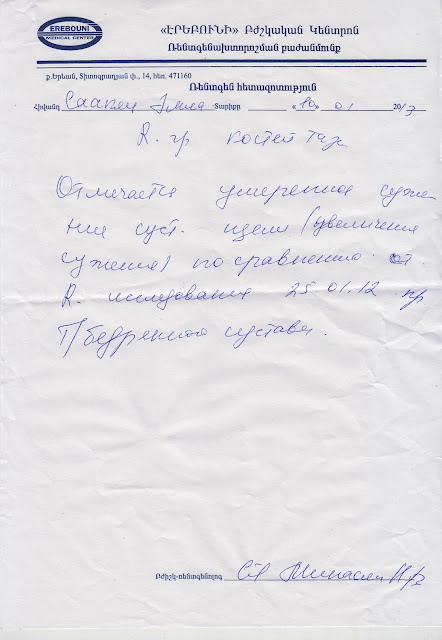 EREBOUNI
MEDICAL CENTER
«ԷՐԵԲՈՒՆԻ» Բժշկական Կենտրոն
Ռենտգենախտորոշման բաժանմունք
ք.Երևան, Տիտոգրադյան փ., 14, հեռ. 471160
Ռենտգեն հետազոտություն
Հիվանդ Саакян Эмма Տարիքը «10» 01 2013
R. гр костей таза
Отмечается умеренное суже
ние суст. щели (увеличение
сужения) по сравнению от
R. исследования 25.01.12 пр
Т/бедренного сустава.
Բժիշկ-ռենտգենոլոգ Минасян